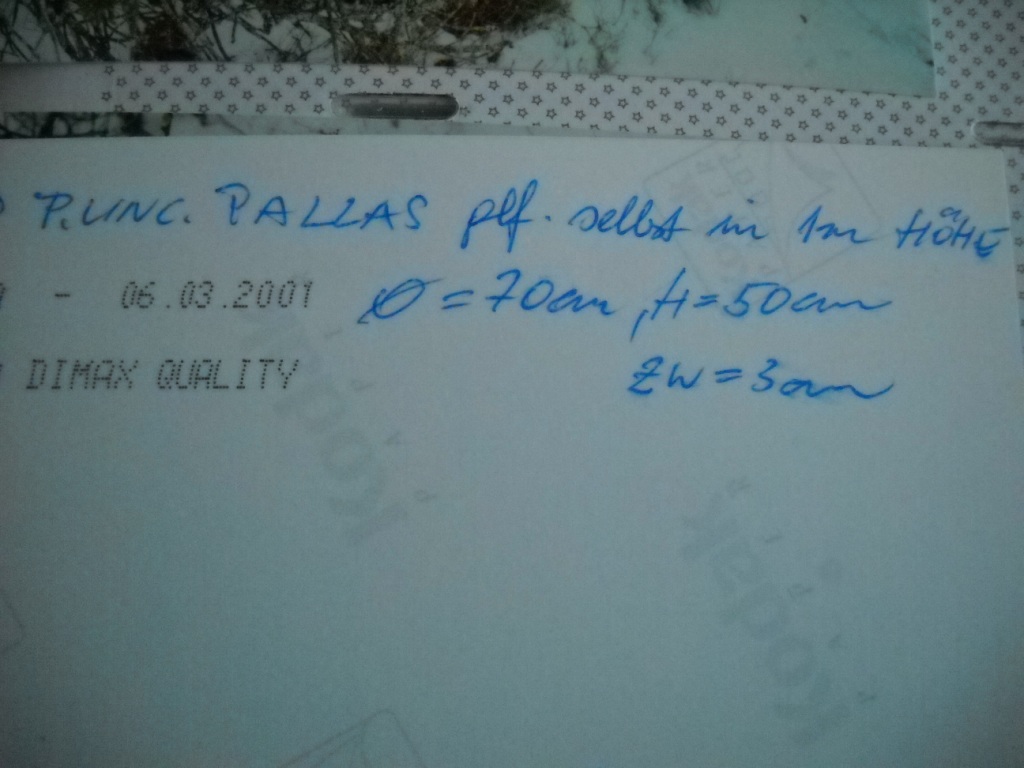 P. UNC. PALLAS plf. selbst in 1m HÖHE
- 06.03.2001 Ø = 70cm, H = 50cm
DIMAX QUALITY ZW = 3cm
Kodak
Kodak